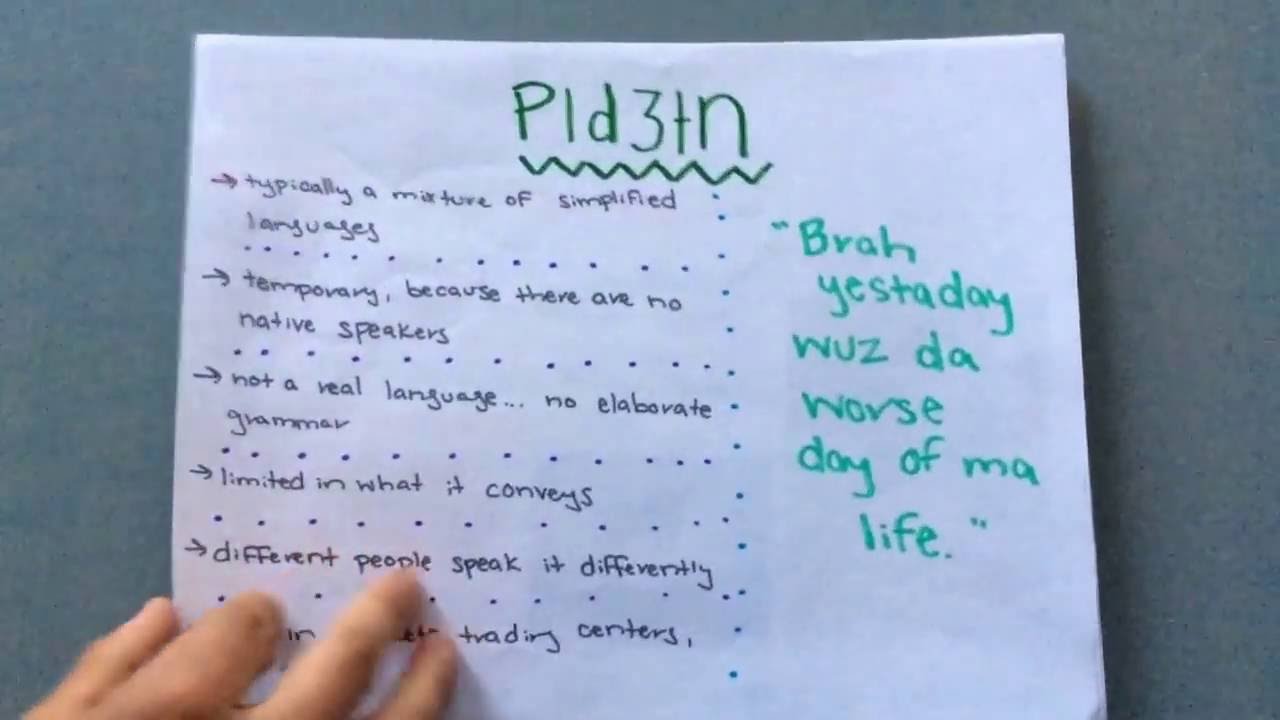 PId3tN
→ typically a mixture of simplified
languages
→ temporary, because there are no
native speakers
→ not a real language... no elaborate
grammar
→ limited in what it conveys
→ different people speak it differently
in trading centers,
"Brah
yestaday
wuz da
worse
day of ma
life."